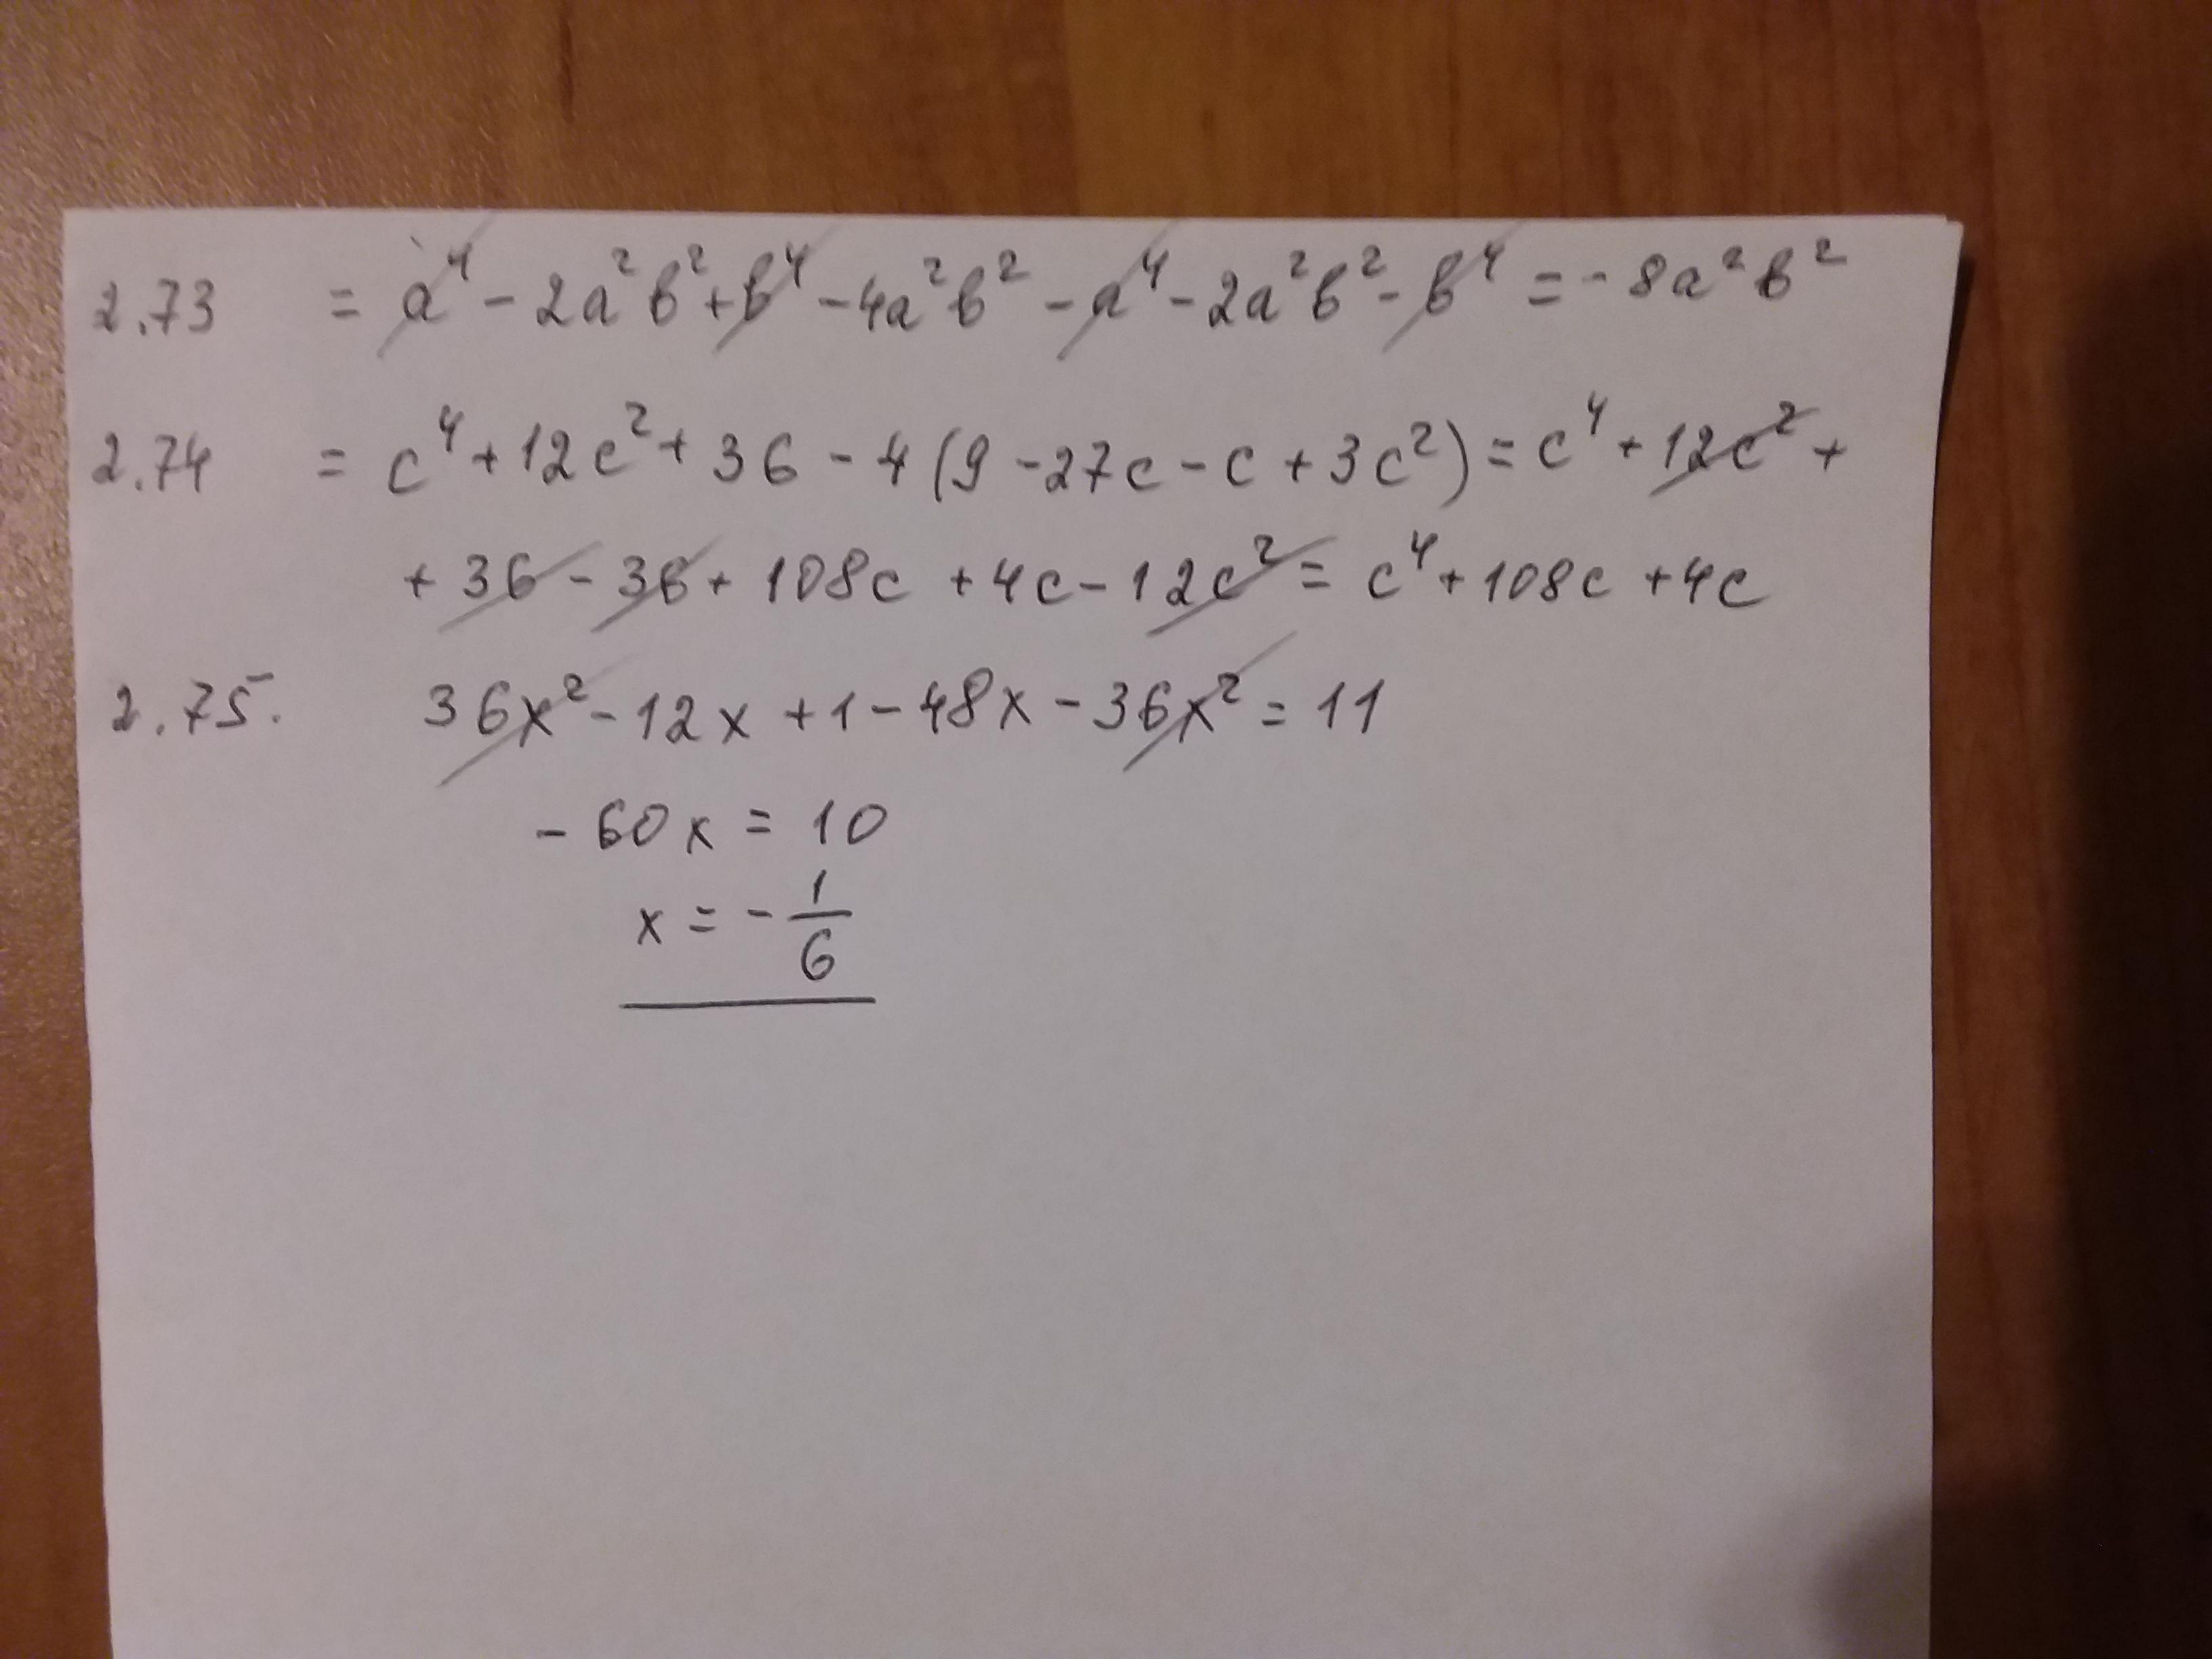 2.73 = a⁴ - 2a²b² + b⁴ - 4a²b² - a⁴ - 2a²b² - b⁴ = - 8a²b²
2.74 = c⁴ + 12c² + 36 - 4(9 - 27c - c + 3c²) = c⁴ + 12c² +
+ 36 - 36 + 108c + 4c - 12c² = c⁴ + 108c + 4c
2.75. 36x² - 12x + 1 - 48x - 36x² = 11
- 60x = 10
x = - 1/6